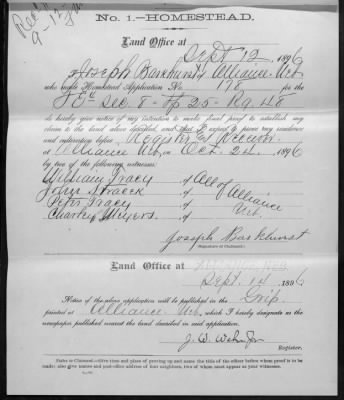 Rec'd
9-12-
No. 1.—HOMESTEAD.
Land Office at
Sept 12, 1896
I, Joseph Barkhurst, Alliance Neb
who made Homestead Application No. 178 for the
Sec. 8 - Tp 25 - Rg. 48
do hereby give notice of my intention to make final proof to establish my
claim to the land above described, and that I expect to prove my residence
and cultivation before Register & Receiver
at Alliance Neb, on Oct. 24, 1896
by two of the following witnesses:
William Tracy, of All of
John , of Alliance
Peter Tracy, of Neb.
Charley Meyers, of
Joseph Barkhurst
(Signature of Claimant.)
Land Office at
Sept. 14, 1896
Notice of the above application will be published in the Grip
printed at Alliance Neb, which I hereby designate as the
newspaper published nearest the land described in said application.
J. W. Wehn Jr
Register.
NOTE TO CLAIMANT.—Give time and place of proving up and name the title of the officer before whom proof is to be
made; also give names and post-office address of four neighbors, two of whom must appear as your witnesses.